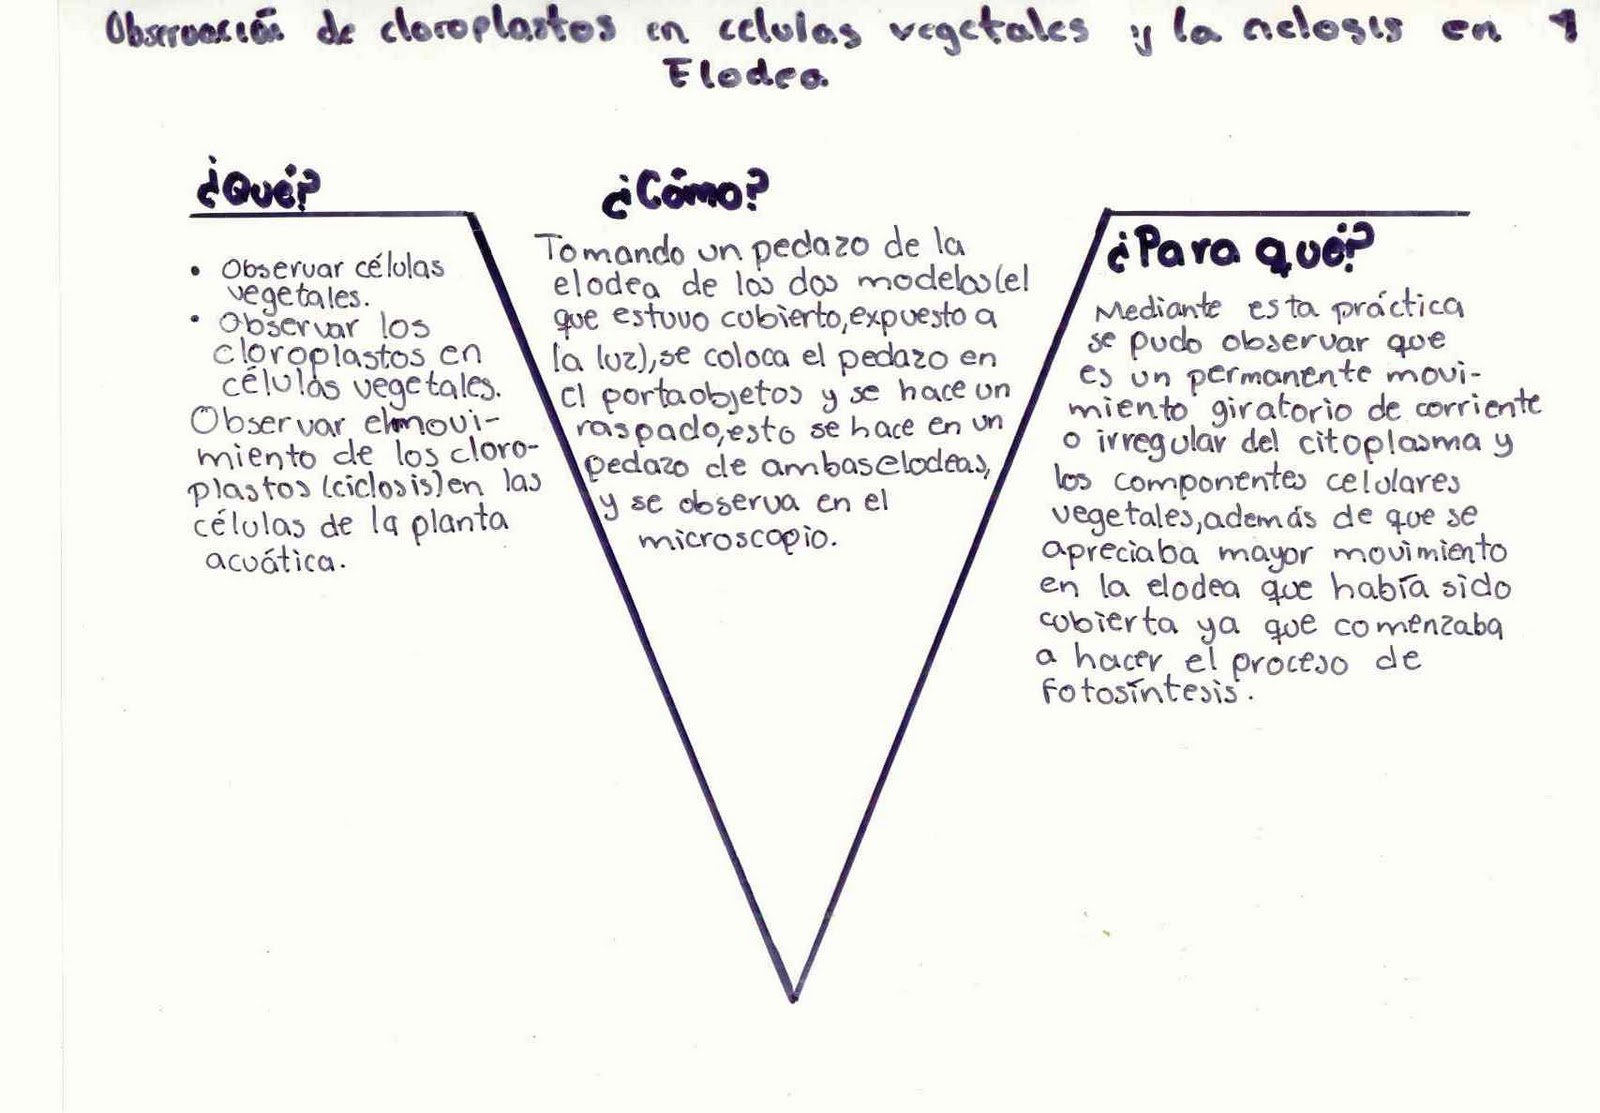 Observación de cloroplastos en celulas vegetales y la ciclosis en 1
Elodea
¿Qué?
• Observar células
vegetales.
• Observar los
cloroplastos en
células vegetales.
Observar el movi-
miento de los cloro-
plastos (ciclosis) en las
células de la planta
acuática.
¿Cómo?
Tomando un pedazo de la
elodea de los dos modelos (el
que estuvo cobierto, expuesto a
la luz), se coloca el pedazo en
el portaobjetos y se hace un
raspado, esto se hace en un
pedazo de ambas elodeas,
y se observa en el
microscopio.
¿Para qué?
Mediante esta práctica
se pudo observar que
es un permanente movi-
miento giratorio de corriente
o irregular del citoplasma y
los componentes celulares
vegetales, además de que se
apreciaba mayor movimiento
en la elodea que había sido
cobierta ya que comenzaba
a hacer el proceso de
fotosíntesis.